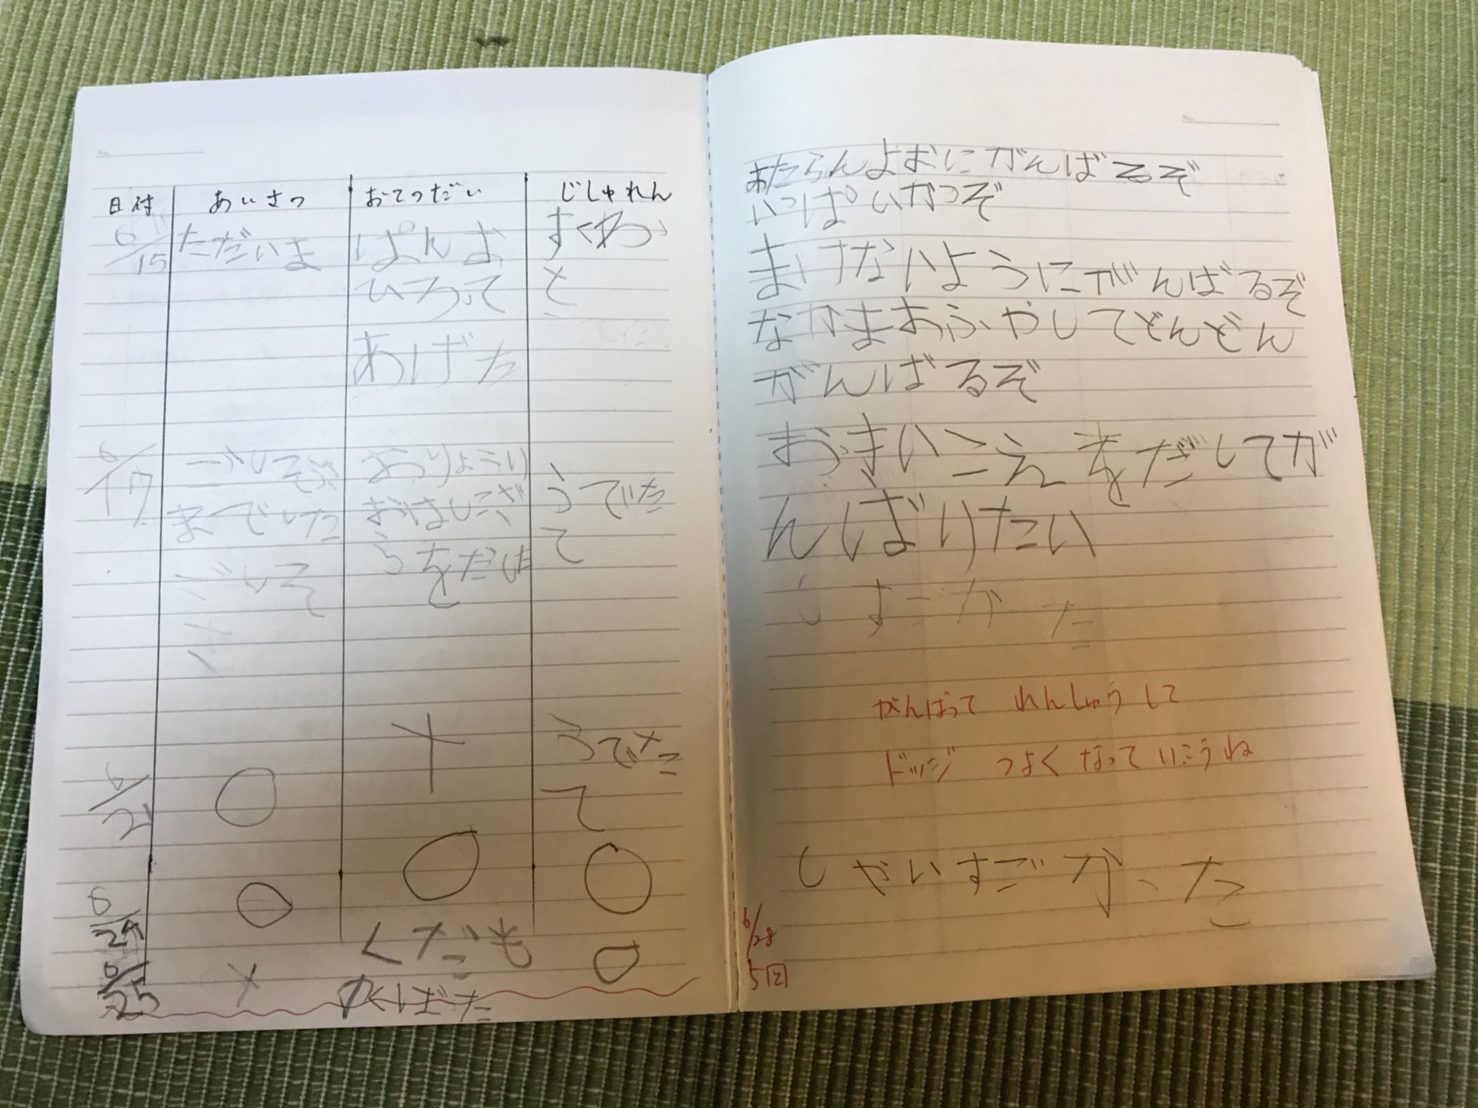 日付 あいさつ おてつだい じしゅれん
6/15 ただいま ぱんよ すくわっ
ひろって と
あげた
6/17 ごしそうさ おりょうり うでたて
まーでした おはしこざ
らをだした
ごしそ
6/21 ○ × うでたて
6/24 ○ ○ ○
6/25 × くだも ○
のくばた
あたらんよおにがんばるぞ
いっぱいかつぞ
まけないようにがんばるぞ
なかまおふやしてどんどん
がんばるぞ
おおきいこえをだしてが
んばりたい
がんばって れんしゅうして
ドッジ つよくなっていこうね
しゃいすごかった
6/28
5回